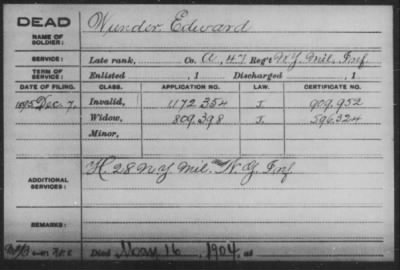 DEAD
NAME OF SOLDIER:
Wunder, Edward
SERVICE:
Late rank, Co. A, 47 Reg't N.Y. Mil. Inf.
TERM OF SERVICE:
Enlisted , 1 Discharged , 1
DATE OF FILING. CLASS. APPLICATION NO. LAW. CERTIFICATE NO.
1895 Dec. 7, Invalid, 1172354 J. 909.952
Widow, 809.398 J. 596.324
Minor,
ADDITIONAL SERVICES:
H. 28 N.Y. Mil. N.G. Inf
REMARKS:
Died May 16, 1904, at